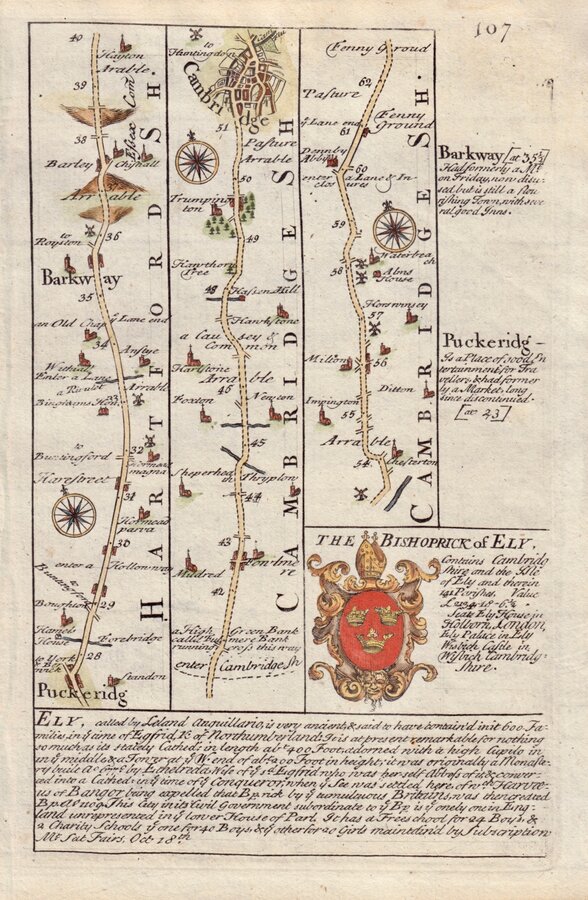 107
40
Hayton
Arable
39
Essex Com
38
Barley
Chishall
Arable
to
Royston
36
Barkway
35
an Old Chap
ye Lane end
34
Anstye
Enter a Lane
Arable
33
to
Buntingford
32
Hormead
magna
Harestreet
31
Hormead
parva
30
enter a Hollow way
29
Hamels
House
Forebridge
28
Standon
Puckeridg
HARTFORDSH.
to
Huntingdon
Cambridge
51
Pasture
Arrable
50
Trumpington
49
Hawthorn
Tree
48
Hasson Hill
Hawkstone
a Causey &
Common
Harlstone
Arrable
46
Foxton
Newton
45
Sheperheath
Thryplow
44
43
Fowlmere
Mildred
42
a High
Green Bank
running cross this way
enter Cambridge Sh
CAMBRIDGESH
Fenny Groud
62
Pasture
Fenny
Ground
ye Lane end
61
Dennby
Abby
60
enter a Lane & In
closures
59
Waterbeach
58
Alms
House
Horswinsey
57
Milton
56
Ditton
Impington
55
Arrable
54
Chesterton
CAMBRIDGESH.
Barkway [at 35½]
Had formerly a Mt
on Friday, now disu
sed but is still a flou
rishing Town, with seve
ral good Inns.
Puckeridg -
Is a Place of good En
tertainment for Tra
vellers, & had former
ly a Market, long
since discontinued.
[at 23]
THE BISHOPRICK of ELY,
Contains Cambridg
shire and the Isle
of Ely and therein
141 Parishes. Value
£2134.18.6¾
Seats Ely House in
Holborn, London,
Ely Palace in Ely
Wisbich Castle in
Wisbich Cambridg-
Shire.
ELY, called by Leland Anguillaria, is very ancient & said to have contain'd in it 600 Fa-
milies in ye time of Egfrid K. of Northumberland. It is at present remarkable for nothing
so much as its stately Cathed: in length abt 400 Foot, adorned with a high Cupilo in
in ye middle & a Tower at ye W. end of abt 200 Foot in height; it was originally a Monaste
ry built by Etheldreda Wife of ye sd Egfrid who was herself Abbess of it & conver
ted into a Cathed: in ye time of ye Conqueror, when ye See was settled here, of wch Harvee
us of Bangor being expelled that Bprick by ye tumultuous Britains, was then created
Bp. A.o 1109. This City in its Civil Government subordinate to ye Bp. is ye onely one in Eng
land unrepresented in ye lower House of Parl. It has a Free school for 24 Boys, &
2 Charity Schools ye one for 40 Boys, & ye other for 20 Girls maintain'd by Subscription
Mt Sat Fairs, Oct 18th